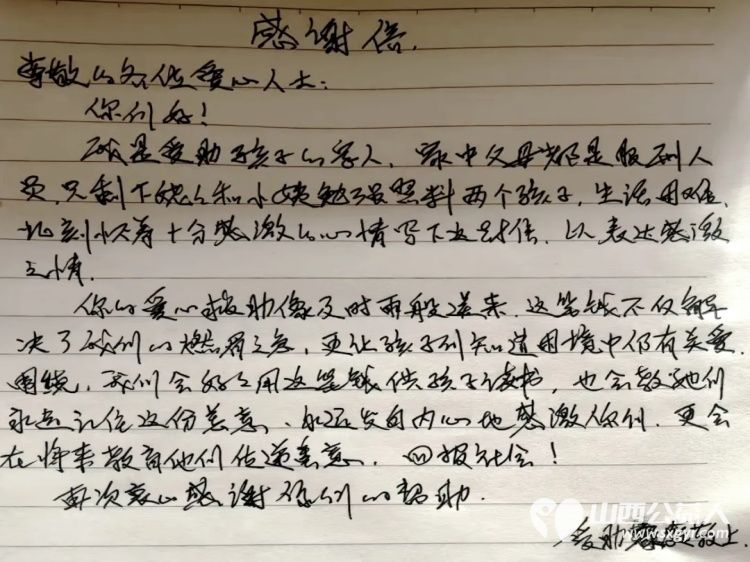 感谢信.
尊敬的各位爱心人士:
你们好!
我是受助孩子的家人,家中父母都是服刑人
员,只剩下姥姥和小姨勉强照料两个孩子,生活困难.
此刻怀着十分感激的心情写下这封信,以表达感激
之情.
你们的爱心救助像及时雨般送来.这笔钱不仅解
决了我们的燃眉之急,更让孩子们知道困境中仍有关爱
围绕,我们会好好用这笔钱供孩子读书,也会教她们
永远记住这份善意.永远发自内心地感激你们.更会
在将来教育他们传递善意,回报社会!
再次衷心感谢你们的帮助.
受助家庭敬上.
山西公益人
www.sxgyr.cn